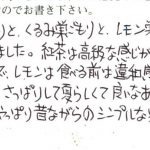 のでお書き下さい。
りと、くるみ巣ごもりと、レモン
ました。紅茶は高級な感じが
で、レモンは食べる前は違和感
さっぱりして夏らしくて良いなあ
やっぱり昔ながらのシンプルな